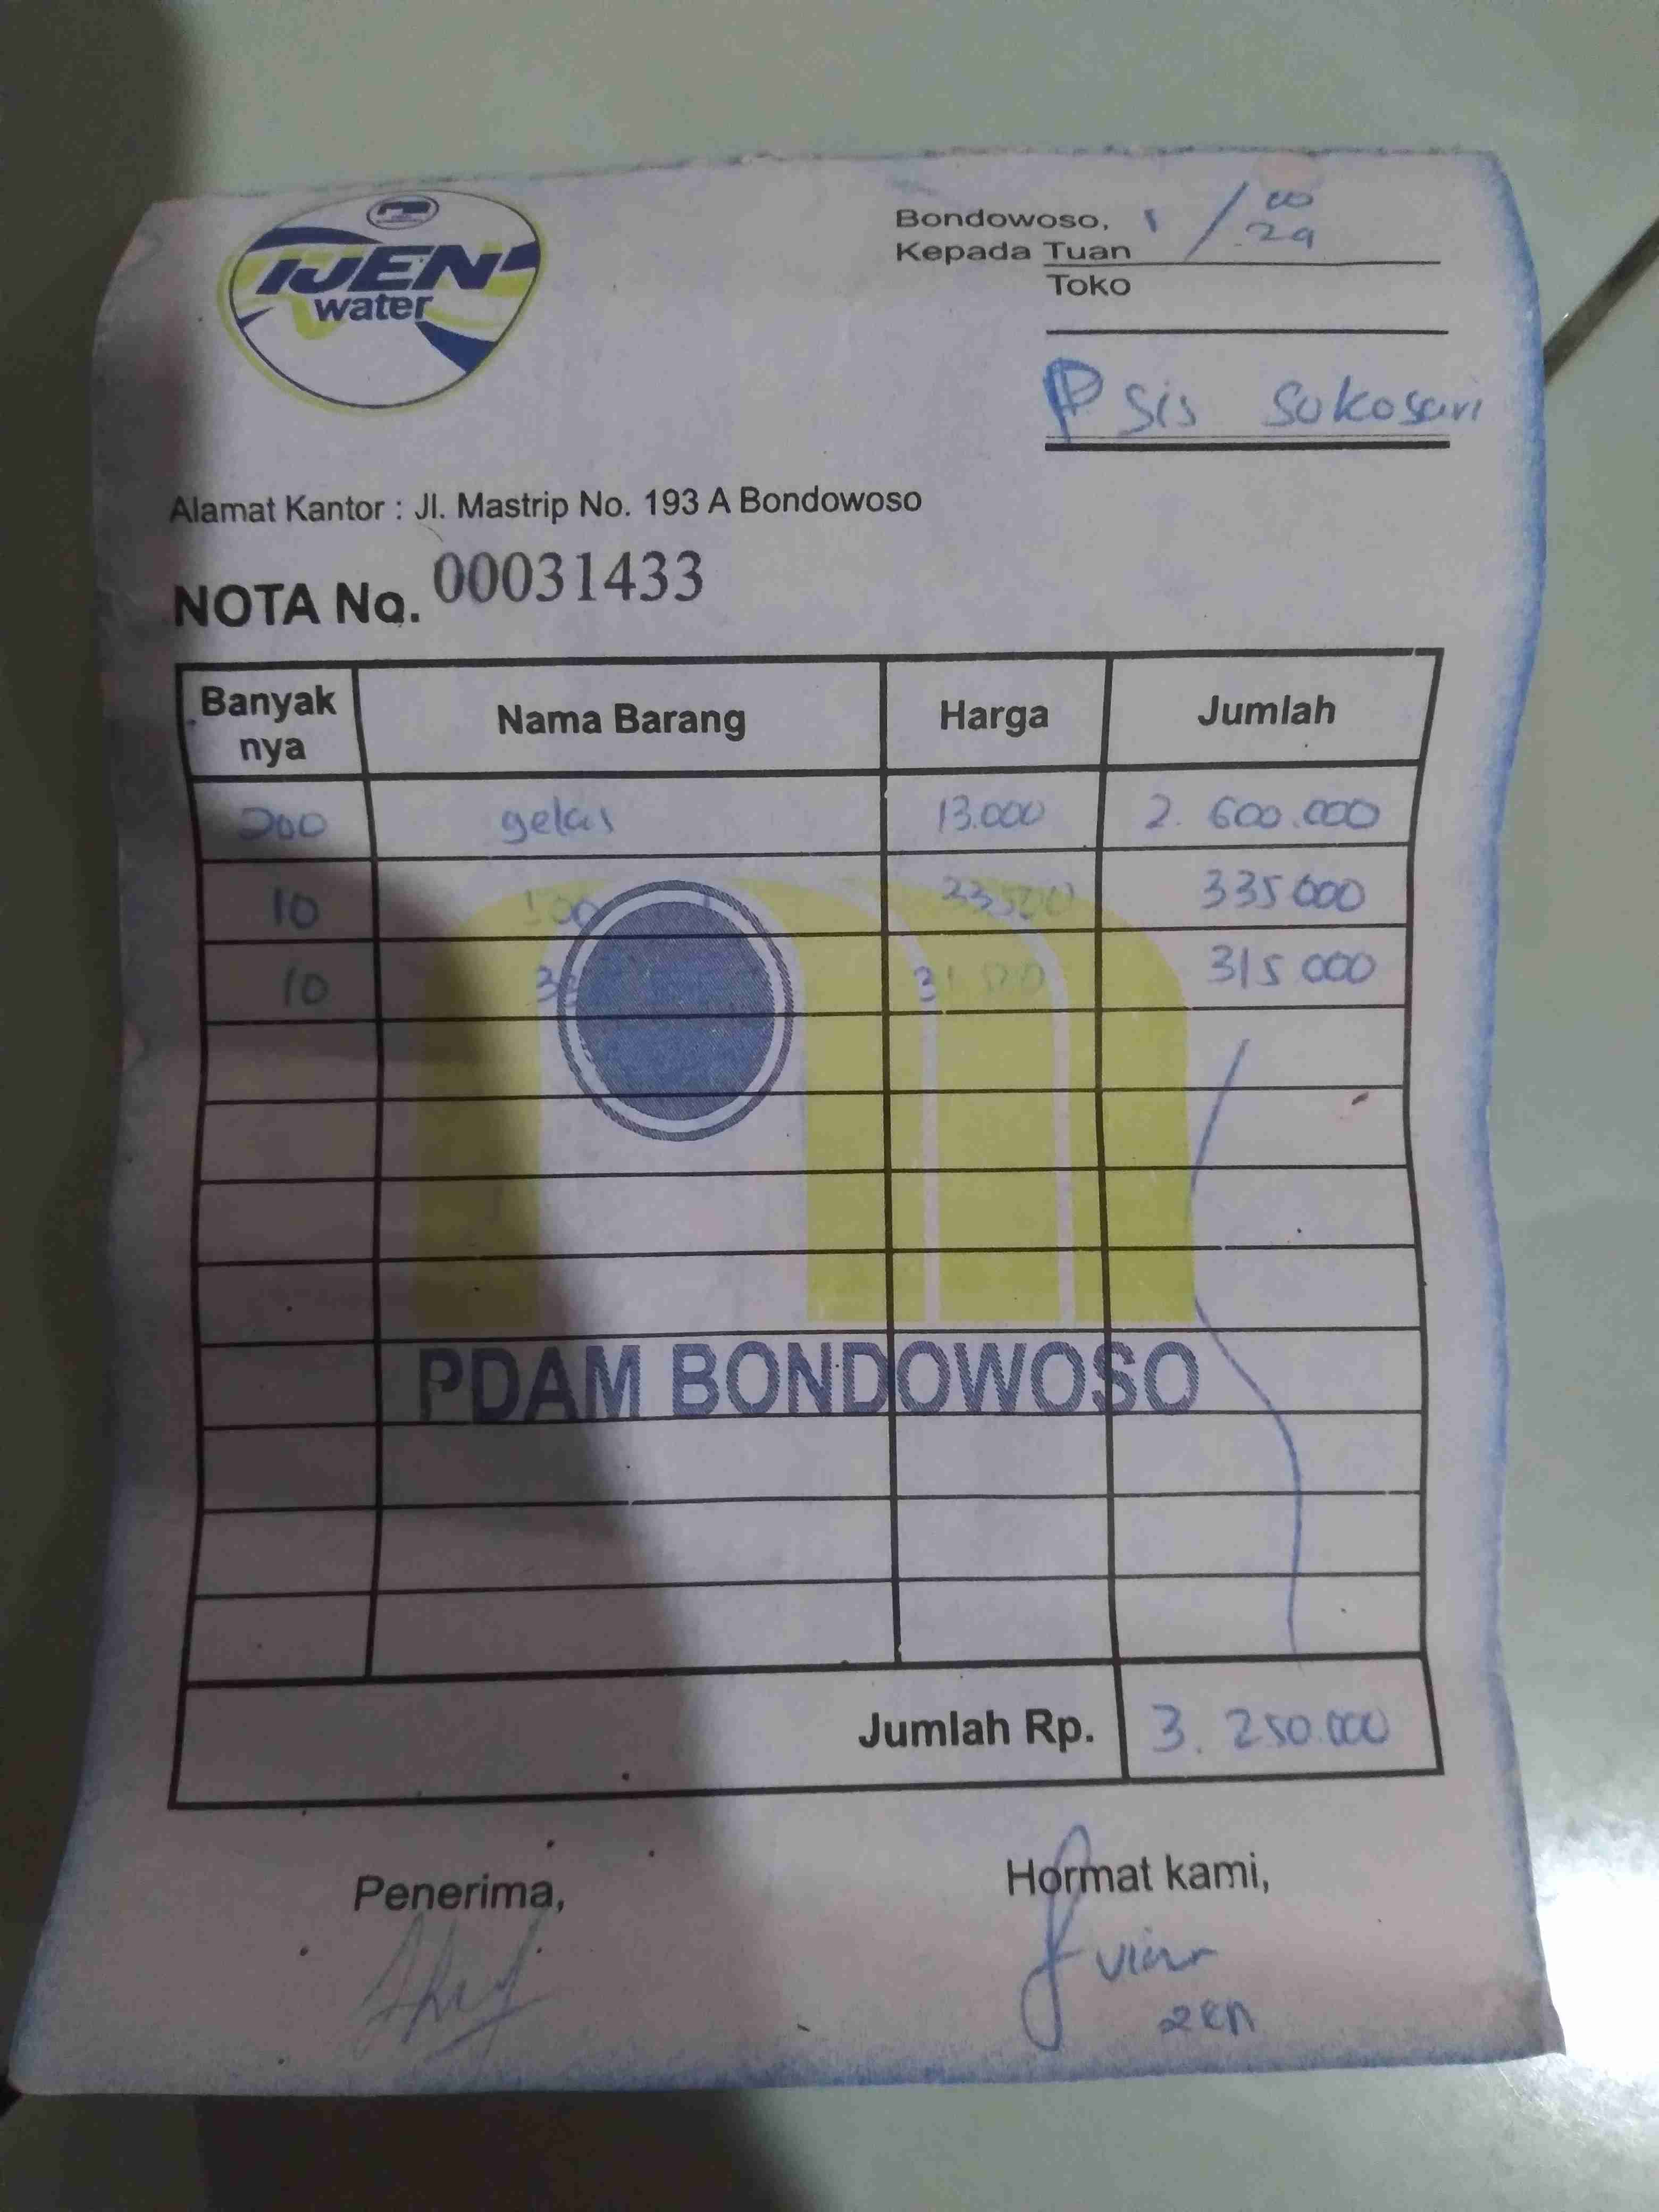 IJEN
water
Bondowoso, 1 /
Kepada Tuan
Toko
P Sis Sukosari
Alamat Kantor : Jl. Mastrip No. 193 A Bondowoso
NOTA No. 00031433
Banyak nya Nama Barang Harga Jumlah
200 gelas 13.000 2. 600.000
10 335 000
10 315 000
PDAM BONDOWOSO
Jumlah Rp. 3. 250.000
Penerima, Hormat kami,